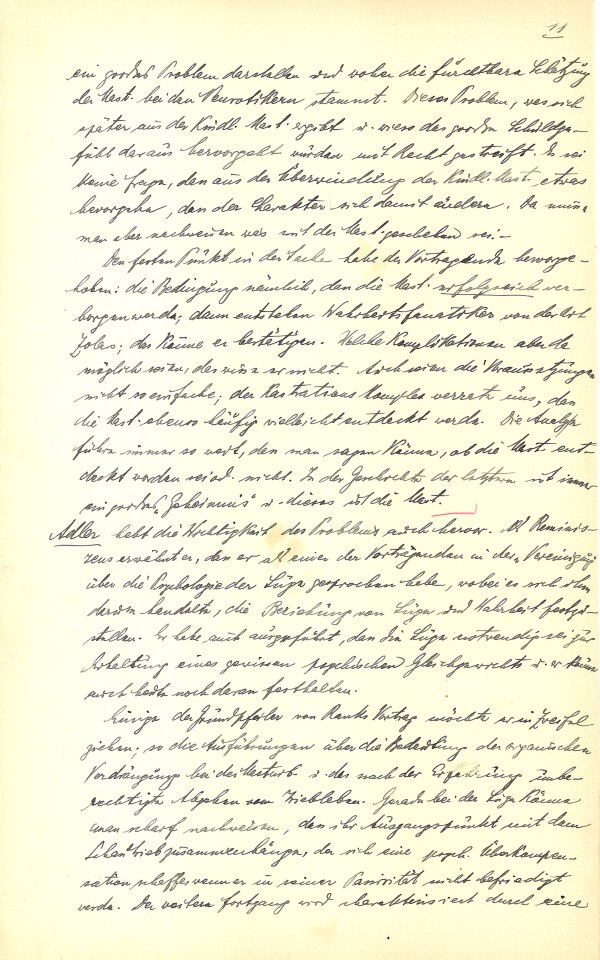 11
ein großes Problem darstellen und woher die furchtbare Schätzung
der Mast. bei den Neurotikern stammt. Dieses Problem, was sich
später aus der Kindl. Mast. ergibt u. wieso das große Schuldge-
fühl daraus hervorgeht würden mit Recht gestreift. Es sei
keine Frage, dass aus der Überwindung der Kindl. Mast. etwas
hervorgehe, dass der Charakter sich damit ändere. Da müsse
man aber nachweisen was mit der Mast. geschehen sei. –
Den festen Punkt in der Sache habe der Vortragende hervorge-
hoben: die Bedingung nämlich, dass die Mast. erfolgreich ver-
borgen werde; dann entstehen Wahrheitsfanatiker von der Art
Zolas; das könne er bestätigen. Welche Komplikationen aber da
möglich seien, das wisse er nicht. Auch seien die Voraussetzungen
nicht so einfache; der Kastrationskomplex verrate uns, dass
die Mast. ebenso häufig vielleicht entdeckt werde. Die Analyse
führe immer so weit, dass man sagen könne, ob die Mast. ent-
deckt worden sei od. nicht. In der Geschichte der letztern ist immer
ein großes „Geheimnis" u. dieses ist die Mast.
Adler hebt die Wichtigkeit des Problems auch hervor. Als Reminis-
zenz erwähnt er, dass er als einer der Vortragenden in der „Vereinigung"
über die Psychologie der Lüge gesprochen habe, wobei es sich ihm
darum handelte, die Beziehung von Lüge und Wahrheit festzu-
stellen. Er habe auch ausgeführt, dass die Lüge notwendig sei zur
Erhaltung eines gewissen psychischen Gleichgewichts u. er könne
auch heute noch daran festhalten.
Einige der Grundpfeiler von Ranks Vortrag möchte er in Zweifel
ziehen; so die Ausführungen über die Bedeutung der organischen
Verdrängung bei der Masturb. u. das nach der Erfahrung unbe-
rechtigte Abgehen vom Triebleben. Gerade bei der Lüge könne
man scharf nachweisen, dass ihr Ausgangspunkt mit dem
Schautrieb zusammenhänge, der sich eine psych. Überkompen-
sation schaffe wenn er in seiner Passivität nicht befriedigt
werde. Der weitere Fortgang wird charakterisiert durch eine